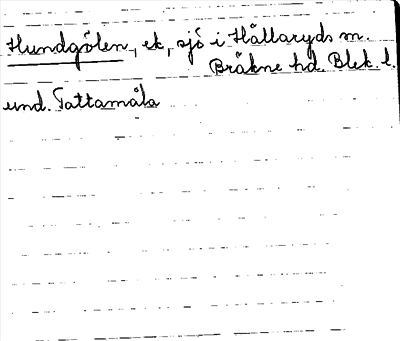 Hundgölen, ek, sjö i Hällaryds m.
Bräkne hd. Blek. l.
und. Tattamåla